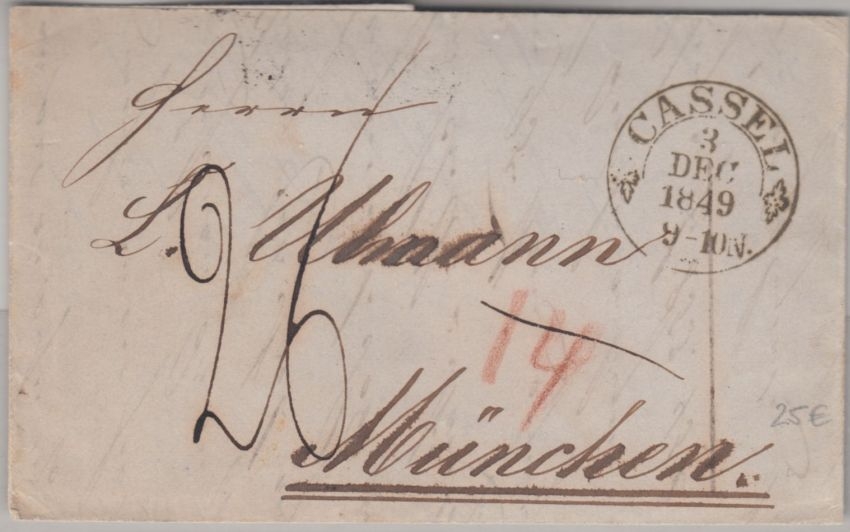 Herrn
L. Ullmann
München.
26
14
CASSEL
3
DEC
1849
9-10N.
25€